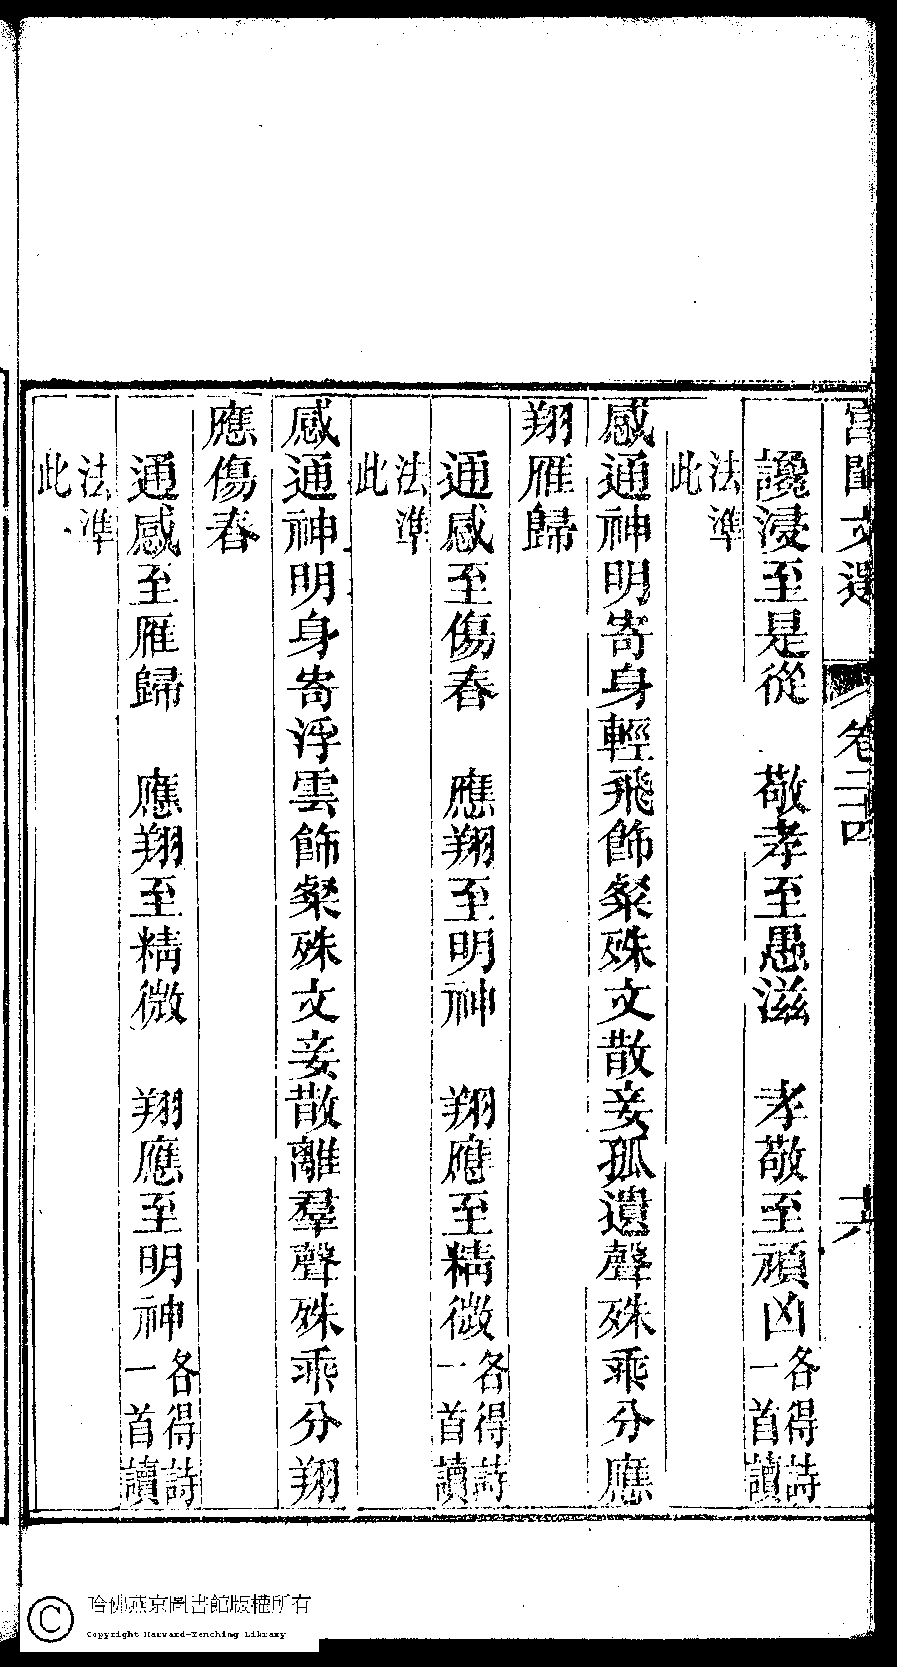 宮閨文選 卷二十四 十六
讒浸至是從 敬孝至愚滋 孝敬至頑凶各得詩一首讀
法準此
感通神明寄身輕飛飾粲殊文散妾孤遺聲殊乖分應
翔雁歸
通感至傷春 應翔至明神 翔應至精微各得詩一首讀
法準此
感通神明身寄浮雲飾粲殊文妾散離羣聲殊乖分翔
應傷春
通感至雁歸 應翔至精微 翔應至明神各得詩一首讀
法準此
哈佛燕京圖書館版權所有
Copyright Harvard-Yenching Library